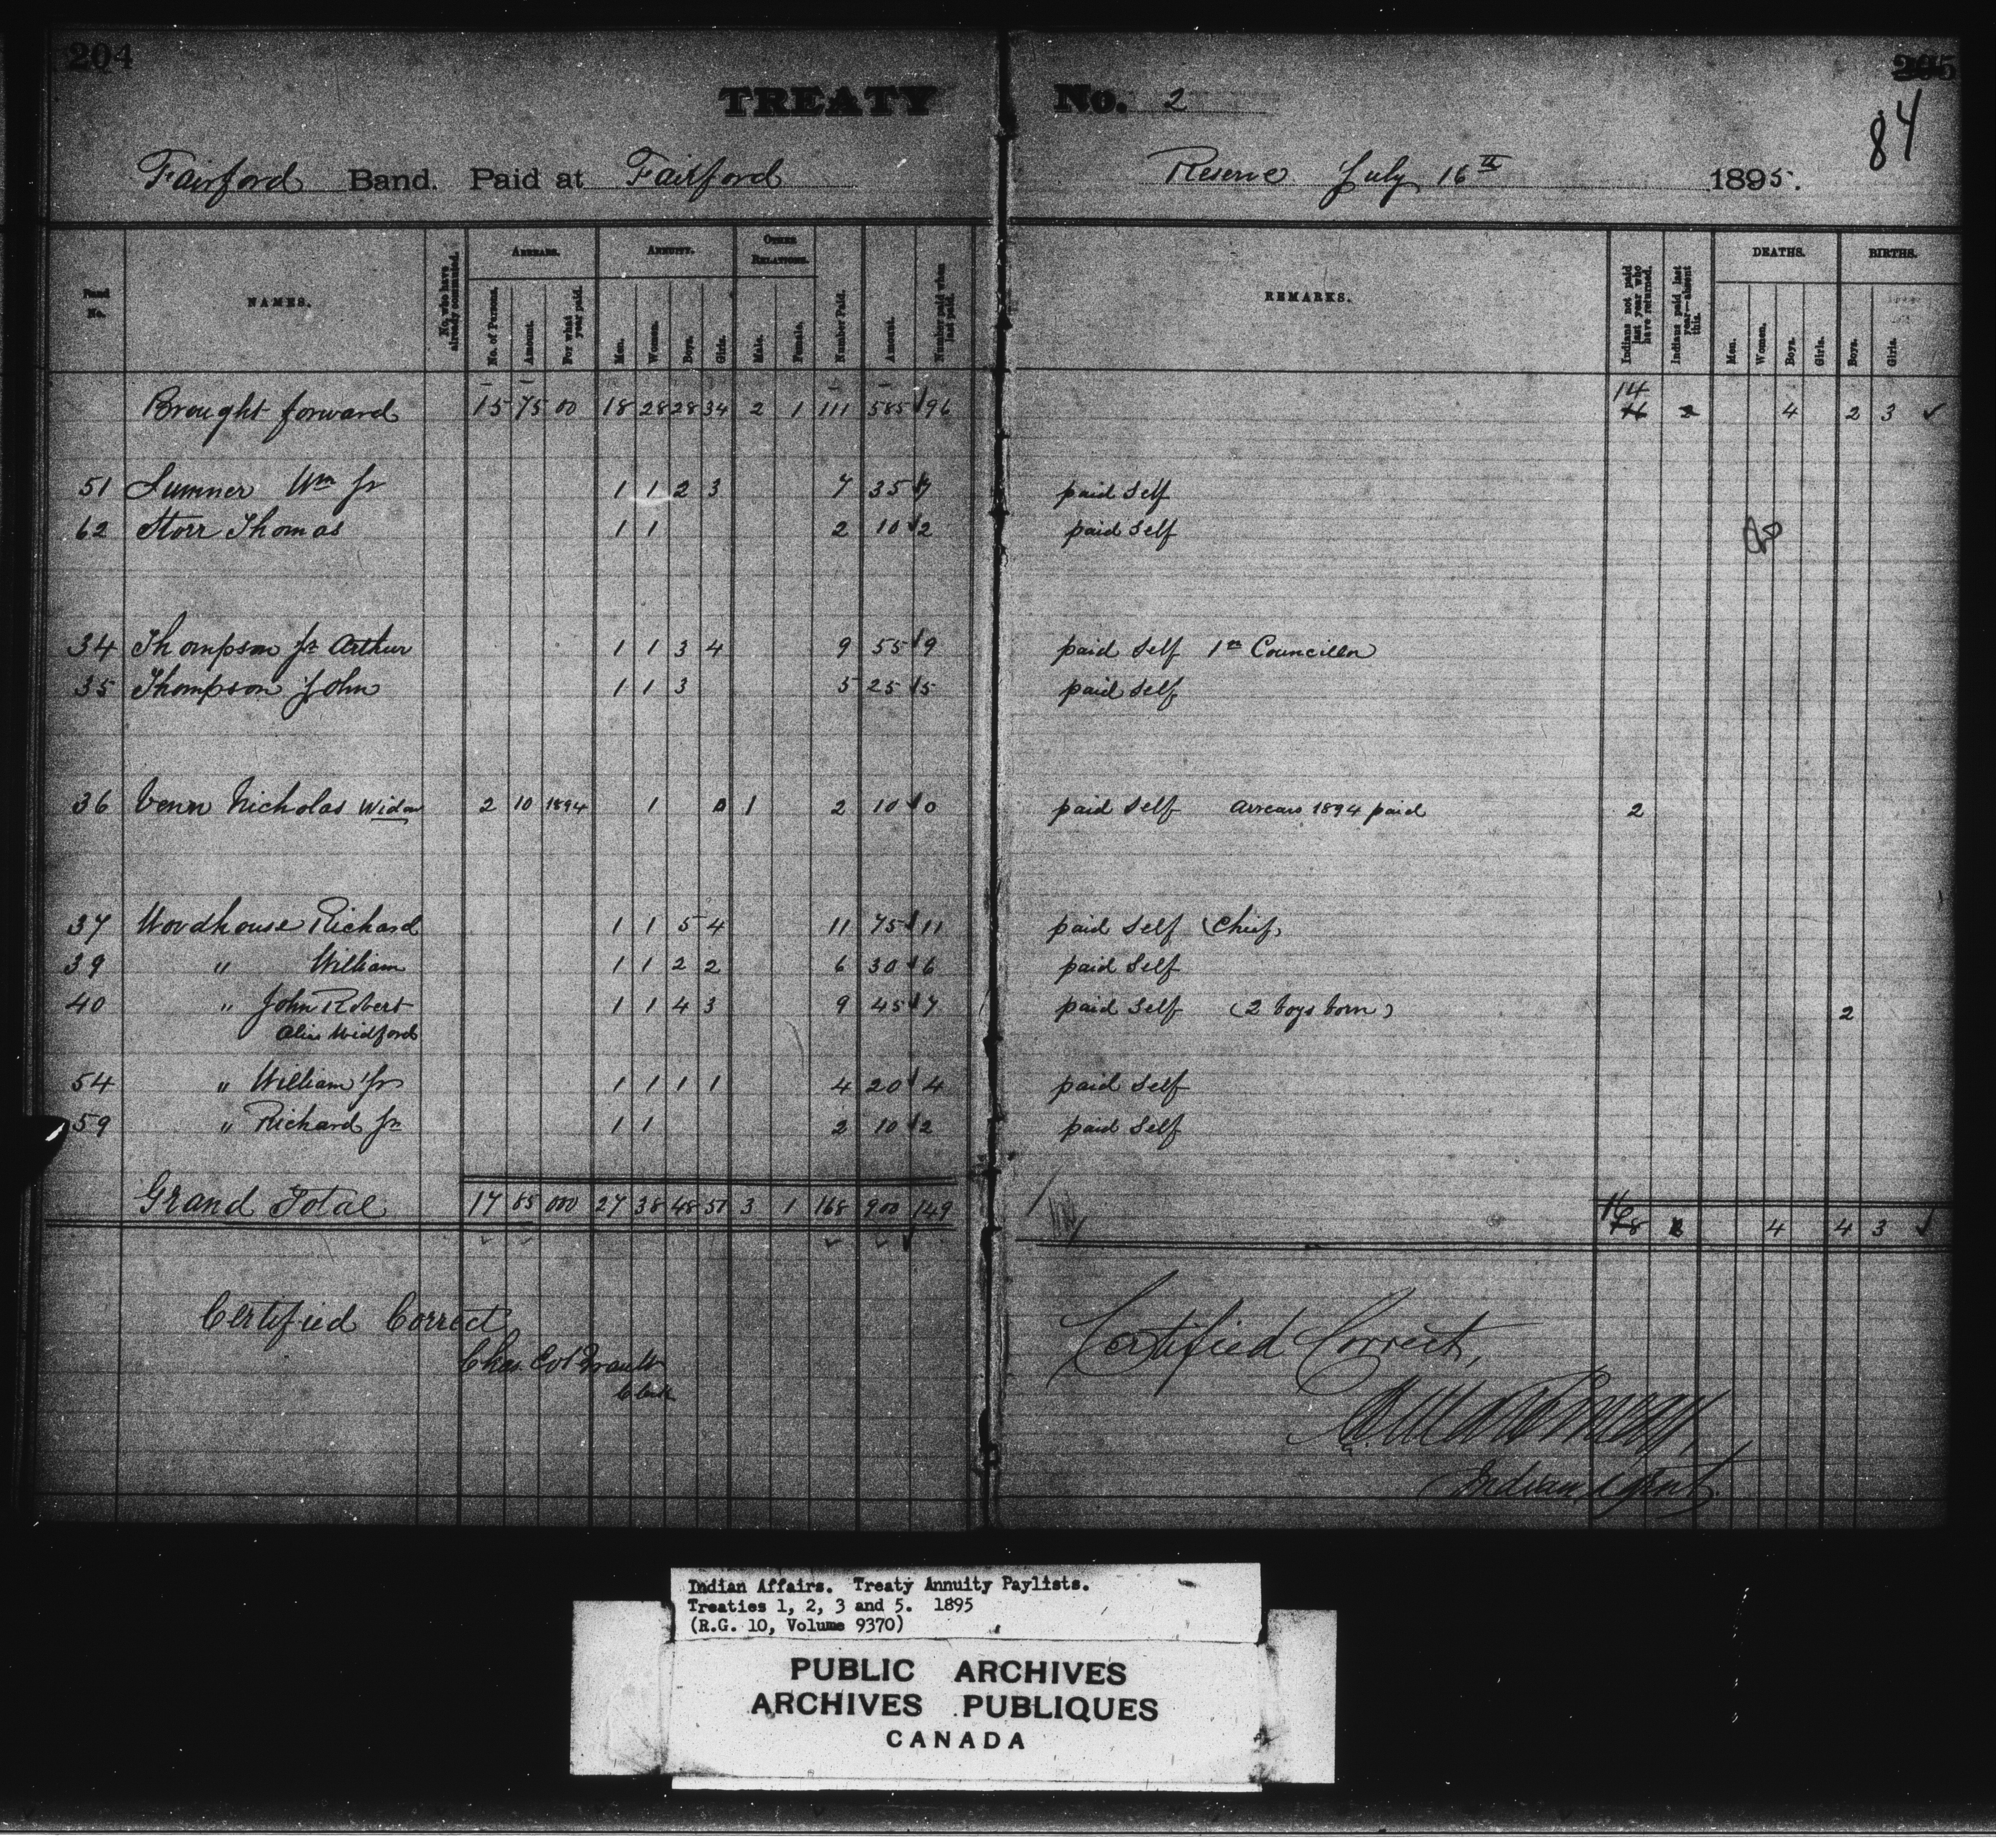 204
205
84
TREATY No. 2
Fairford Band. Paid at Fairford Reserve July 16th 1895.
Band No. NAMES. No. who have already commuted. ARREARS. No. of Persons. Amount. For what year paid. ANNUITY. Men. Women. Boys. Girls. OTHER RELATIONS. Male. Female. Number Paid. Amount. Number paid when last paid. REMARKS. Indians not paid last year who have returned. Indians paid last year—absent this. DEATHS. Men. Women. Boys. Girls. BIRTHS. Boys. Girls.
14
Brought forward 15 75 00 18 28 28 34 2 1 111 585 96 16 2 4 2 3 ✓
51 Sumner Wm Jr 1 1 2 3 7 35 7 paid Self
62 Storr Thomas 1 1 2 10 2 paid Self
34 Thompson Jr Arthur 1 1 3 4 9 55 9 paid Self 1st Councillor
35 Thompson John 1 1 3 5 25 5 paid Self
36 Venn Nicholas Widow 2 10 1894 1 0 1 2 10 0 paid Self arrears 1894 paid 2
37 Woodhouse Richard 1 1 5 4 11 75 11 paid Self (Chief)
39 " William 1 1 2 2 6 30 6 paid Self
40 " John Robert 1 1 4 3 9 45 7 paid Self (2 boys born) 2
Alias Widford
54 " William Jr 1 1 1 1 4 20 4 paid Self
59 " Richard Jr 1 1 2 10 2 paid Self
Grand Total 17 85 000 27 38 48 51 3 1 168 900 149 16 18 2 4 4 3 ✓
Certified Correct
Chas.
Clerk
Certified Correct,
Indian Agent
Indian Affairs. Treaty Annuity Paylists.
Treaties 1, 2, 3 and 5. 1895
(R.G. 10, Volume 9370)
PUBLIC ARCHIVES
ARCHIVES PUBLIQUES
CANADA